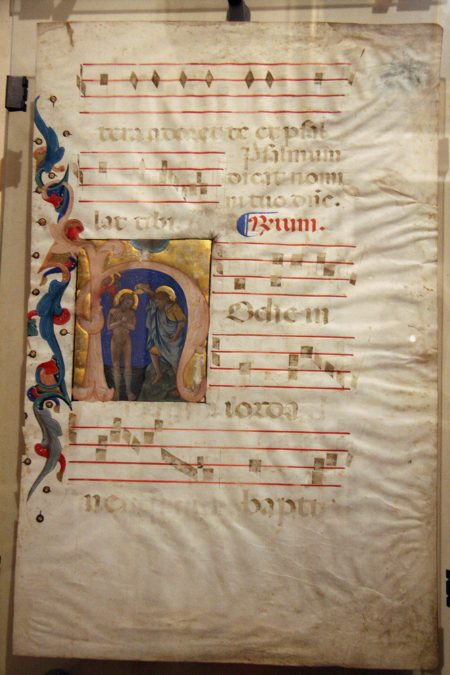 tera adorent te et psal
Psalmum
dicat nomi
ni tuo dñe.
lat tibi.
Hodie in
iorda
ne bapti